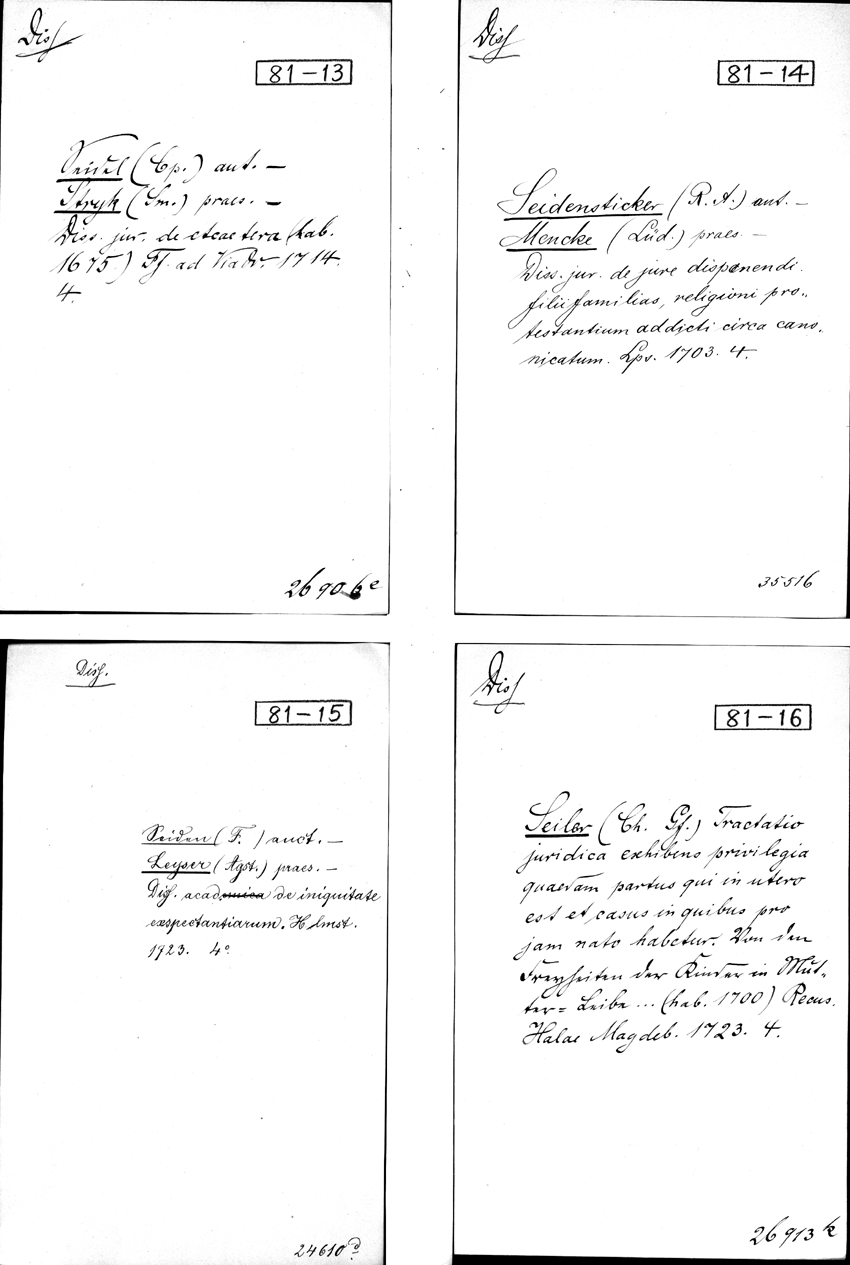 Diss
81-13
Seidel (Cp.) aut. —
Stryk (Sm.) praes. —
Diss. jur. de etcaetera (hab.
1675.) Ff. ad Viadr. 1714.
4.
26906 e
Diss
81-14
Seidensticker (R. A.) aut. —
Mencke (Lüd.) praes —
Diss. jur. de jure disponendi
filiifamilias, religioni pro-
testantium addicti circa cano-
nicatum. Lps. 1703. 4.
35516
Diss.
81-15
Seiden (F. ) auct. —
Leyser (Agst.) praes. —
Diss. academica de iniquitate
exspectantiarum. Hlmst.
1923. 4o.
24610 d
Diss
81-16
Seiler (Ch. Gf.) Tractatio
juridica exhibens privilegia
quaedam partus qui in utero
est et casus in quibus pro
jam nato habetur. Von den
Freyheiten der Kinder in Mut-
ter= Leibe ... (hab. 1700) Recus.
Halae Magdeb. 1723. 4.
26913 k